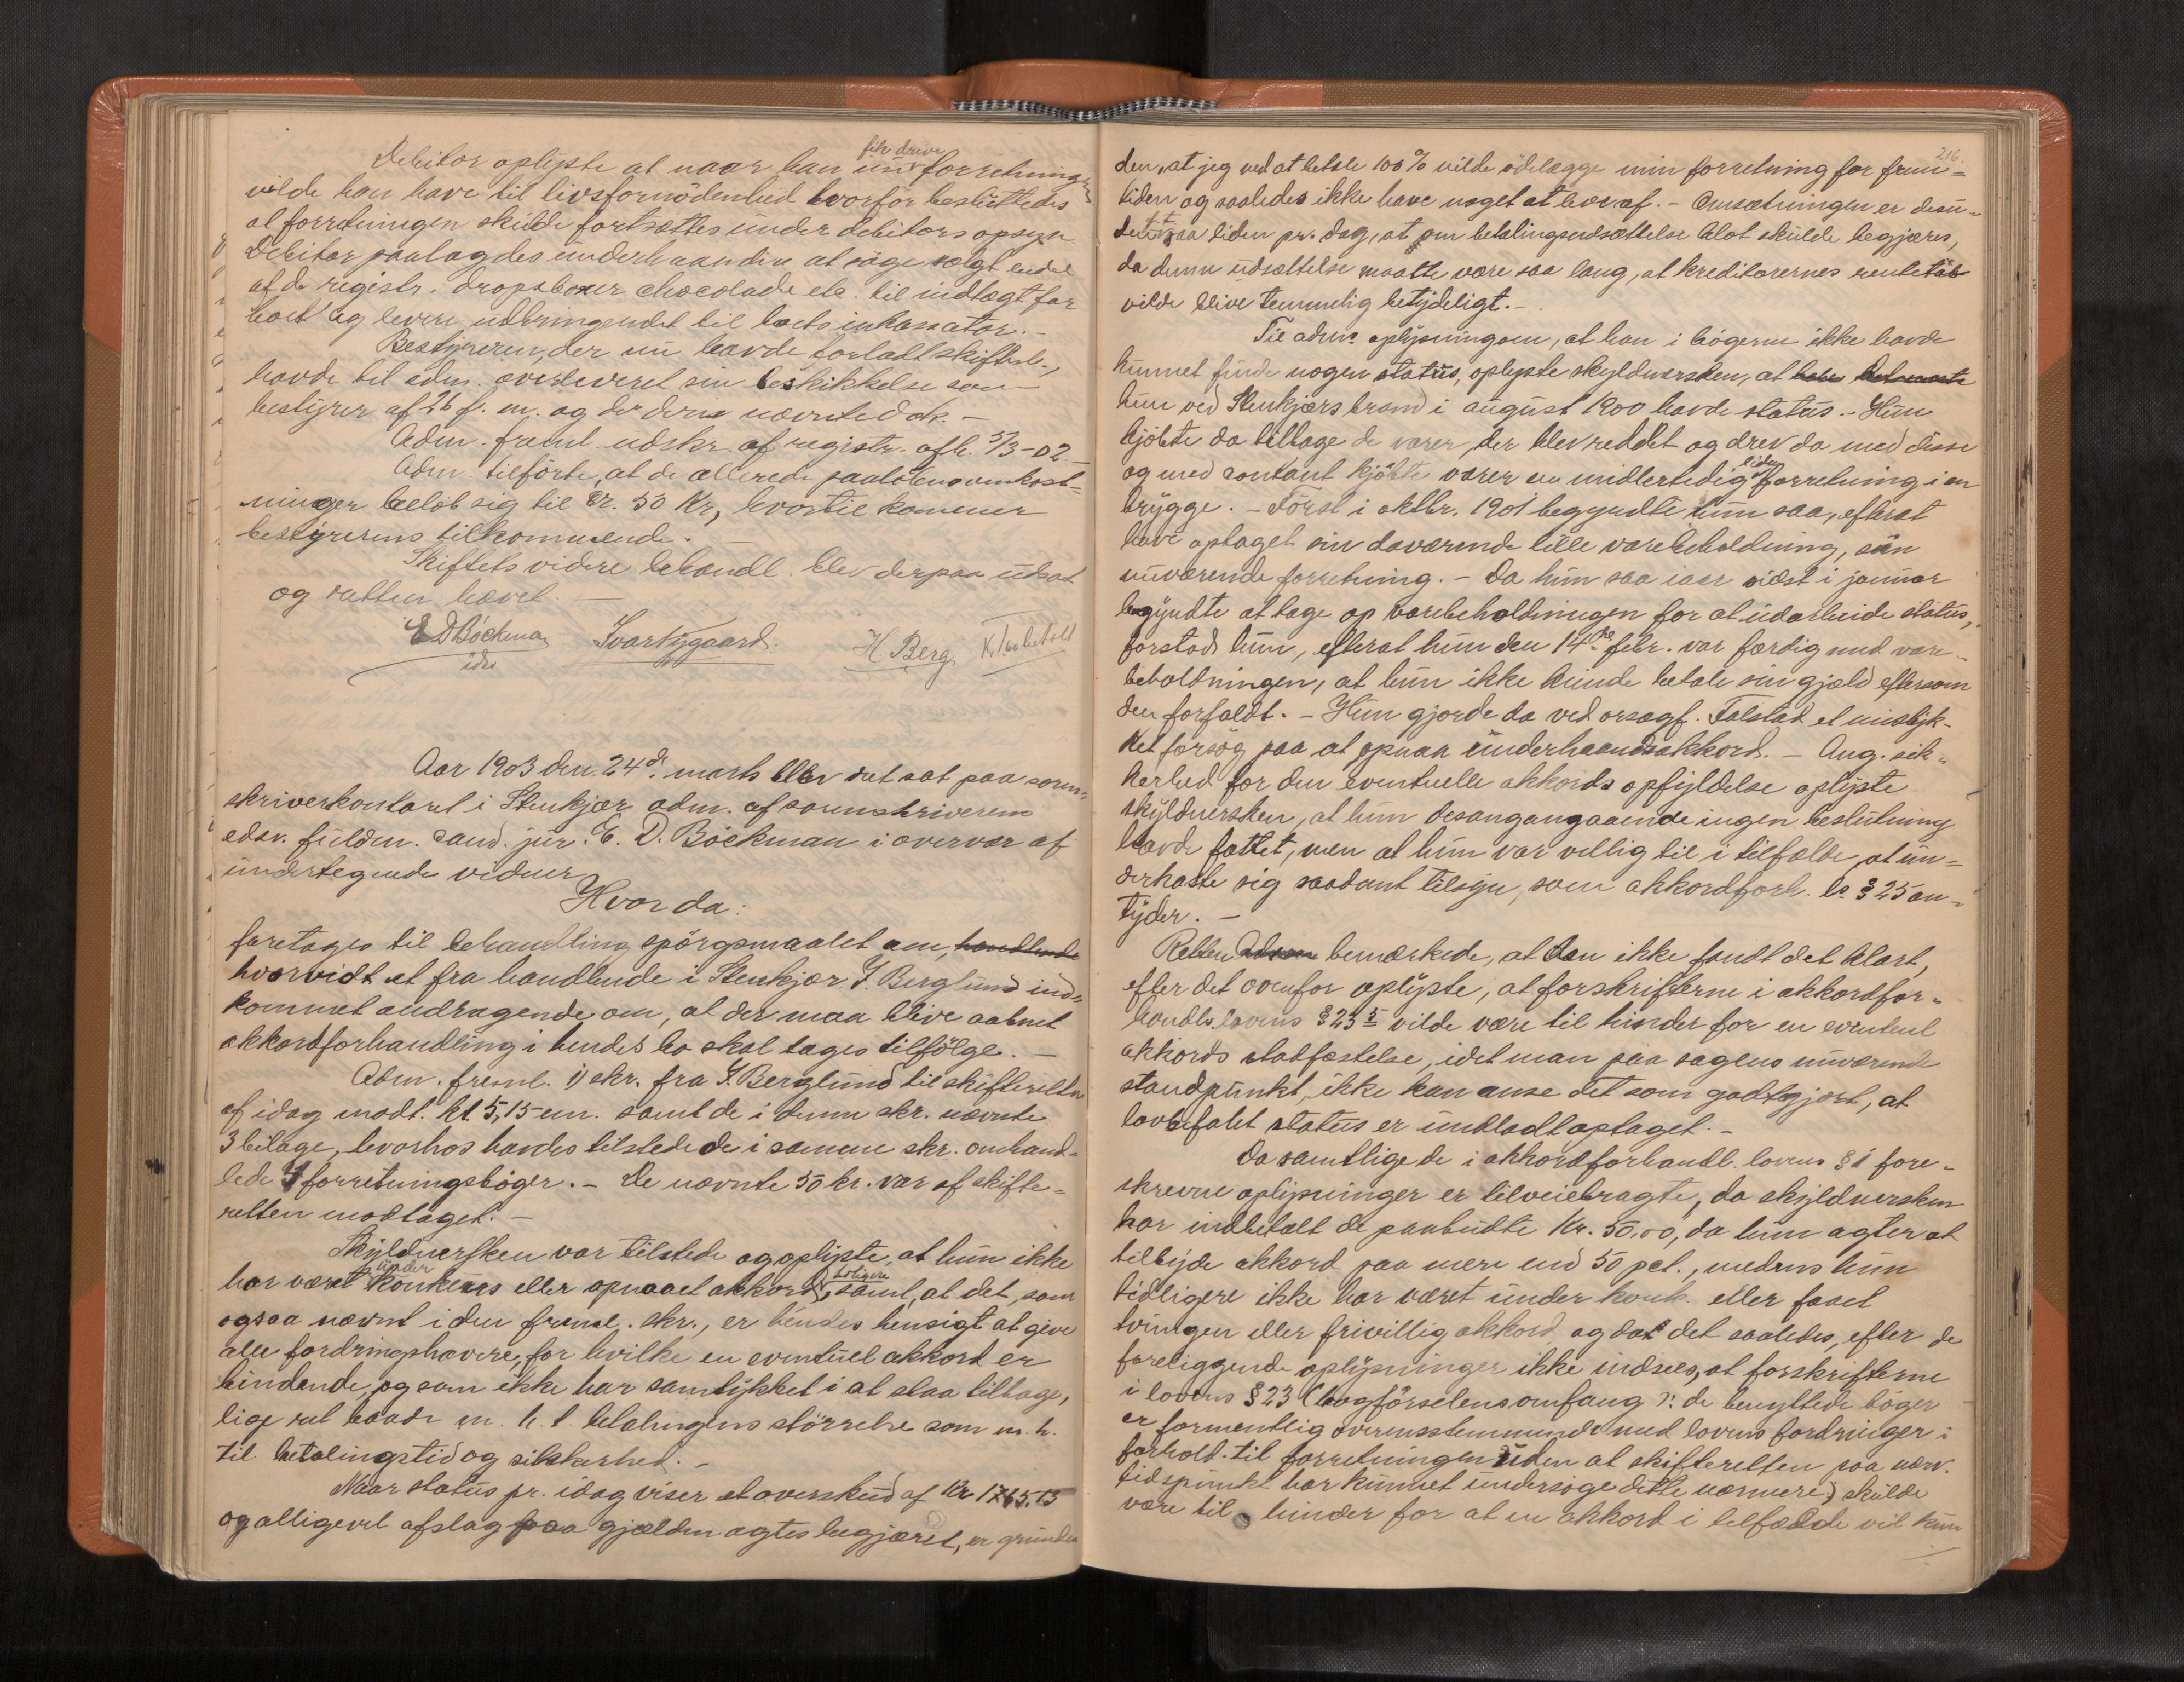 Debitor oplyste at naar han nu fik drive forretningen
vilde han have til livsfornödenhed hvorfor besluttedes
at forretningen skulde fortsættes under debitors opsyn
Debitor paalagdes underhaanden at söge solgt endel
af de registr. dropsboxer chocolade etc. til indtægt for
boet og levere udbringendet til boets inkassator. -
Bestyreren, der nu havde forladt skiftest.,
havde til adm. overleveret sin beskikkelse som
bestyrer af 26 f. m. og de deri nævnte dok. -
Adm. freml. udskr. af registr. afh. 5/3-02. -
Adm. tilförte, at de allerede paalöbne omkost=
ninger belöb sig til Kr. 50 Kr, hvortil kommer
bestyrerens tilkommende. -
Skiftets videre behandl. blev derpaa udsat
og retten hævet. -
E D Böckman Svartygaard. H Berg
Aar 1903 den 24de marts blev ret sat paa soren=
skriverkontoret i Stenkjær adm. af sorenskriverens
edsv. fuldm. cand. jur. E. D. Böckman i overvær af
undertegnede vidner
Hvor da:
foretages til behandling spörgsmaalet om, handlende
hvorvidt et fra handlende i Stenkjær J. Berglund ind=
kommet andragende om, at der maa blive aabnet
akkordforhandling i hendes bo skal tages tilfölge. -
Adm. freml. 1) skr. fra J. Berglund til skifteretten
af idag modt. kl. 5,15 em. samt de i denne skr. nævnte
3 bilage, hvorhos havdes tilstede de i samme skr. omhand=
lede 4 forretningsböger. - De nævnte 50 kr. var af skifte=
retten modtaget. -
Skyldnersken var tilstede og oplyste, at hun ikke
har været under konkurs eller opnaaet akkord tidligere, samt, at det, som
ogsaa nævnt i den freml. skr., er hendes hensigt at give
alle fordringshavere, for hvilke en eventuel akkord er
bindende, og som ikke har samtykket i at staa tilbage,
lige ret baade m. h. t. betalingens störrelse som m. h.
til betalingstid og sikkerhed. -
Naar status pr. idag viser et overskud af Kr 1765.15
og alligevel afslag paa gjælden agtes begjæret, er grunden
216.
den, at jeg ved at betale 100% vilde ödelægge min forretning for frem=
tiden og saaledes ikke have noget at leve af. - Omsætningen er desu=
den saa liden pr. dag, at om betalingsudsættelse blot skulde begjæres,
da denne udsættelse maatte være saa lang, at kreditorernes rentetab
vilde blive temmelig betydeligt. -
Til adms. oplysning om, at han i bögerne ikke havde
kunnet finde nogen status, oplyste skyldnersken, at
hun ved Stenkjærs brand i august 1900 havde status. - Hun
kjöbte da tilbage de varer, der blev reddet og drev da med disse
og med contant kjöbte varer en midlertidig liden forretning i en
brygge. - Först i oktbr. 1901 begyndte hun saa, efterat
have optaget sin daværende lille varebeholdning, sin
nuværende forretning. - Da hun saa iaar sidst i januar
begyndte at tage op varebeholdningen for at udarbeide status,
forstod hun, efterat hun den 14de febr. var færdig med vare-
beholdningen, at hun ikke kunde betale sin gjæld eftersom
den forfaldt. - Hun gjorde da ved orsagf. Falstad et mislyk-
ket forsög paa at opnaa underhaandsakkord. - Ang. sik=
kerhed for den eventuelle akkords opfyldelse oplyste
skyldnersken, at hun desangangaaende ingen beslutning
havde fattet, men at hun var villig til i tilfælde, at un=
derkaste sig saadant tilsyn, som akkordforh. ls. § 25 an=
tyder. -
Retten bemærkede, at den ikke fandt det klart,
efter det ovenfor oplyste, at forskrifterne i akkordfor=
handls.lovens § 23 5 vilde være til hinder for en eventuel
akkords stadfæstelse, idet man paa sagens nuværende
standpunkt, ikke kan anse det som godtgjort, at
lovbefalet status er undladt optaget. -
Da samtlige de i akkordforhandl. lovens § 1 fore=
skrevne oplysninger er tilveiebragte, da skyldnersken
har indbetalt de paabudte Kr. 50.00, da hun agter at
tilbyde akkord paa mere end 50 pct., medens hun
tidligere ikke har været under konk. eller faaet
tvungen eller frivillig akkord og da det saaledes, efter de
foreliggende oplysninger ikke indsees, at forskrifterne
i lovens § 23 (bogförselens omfang ɔ: de benyttede böger
er formentlig overensstemmende med lovens fordringer i
forhold til forretningen uden at skifteretten paa nærv.
tidspunkt har kunnet undersöge dette nærmere) skulde
være til hinder for at en akkord i tilfælde vil kun